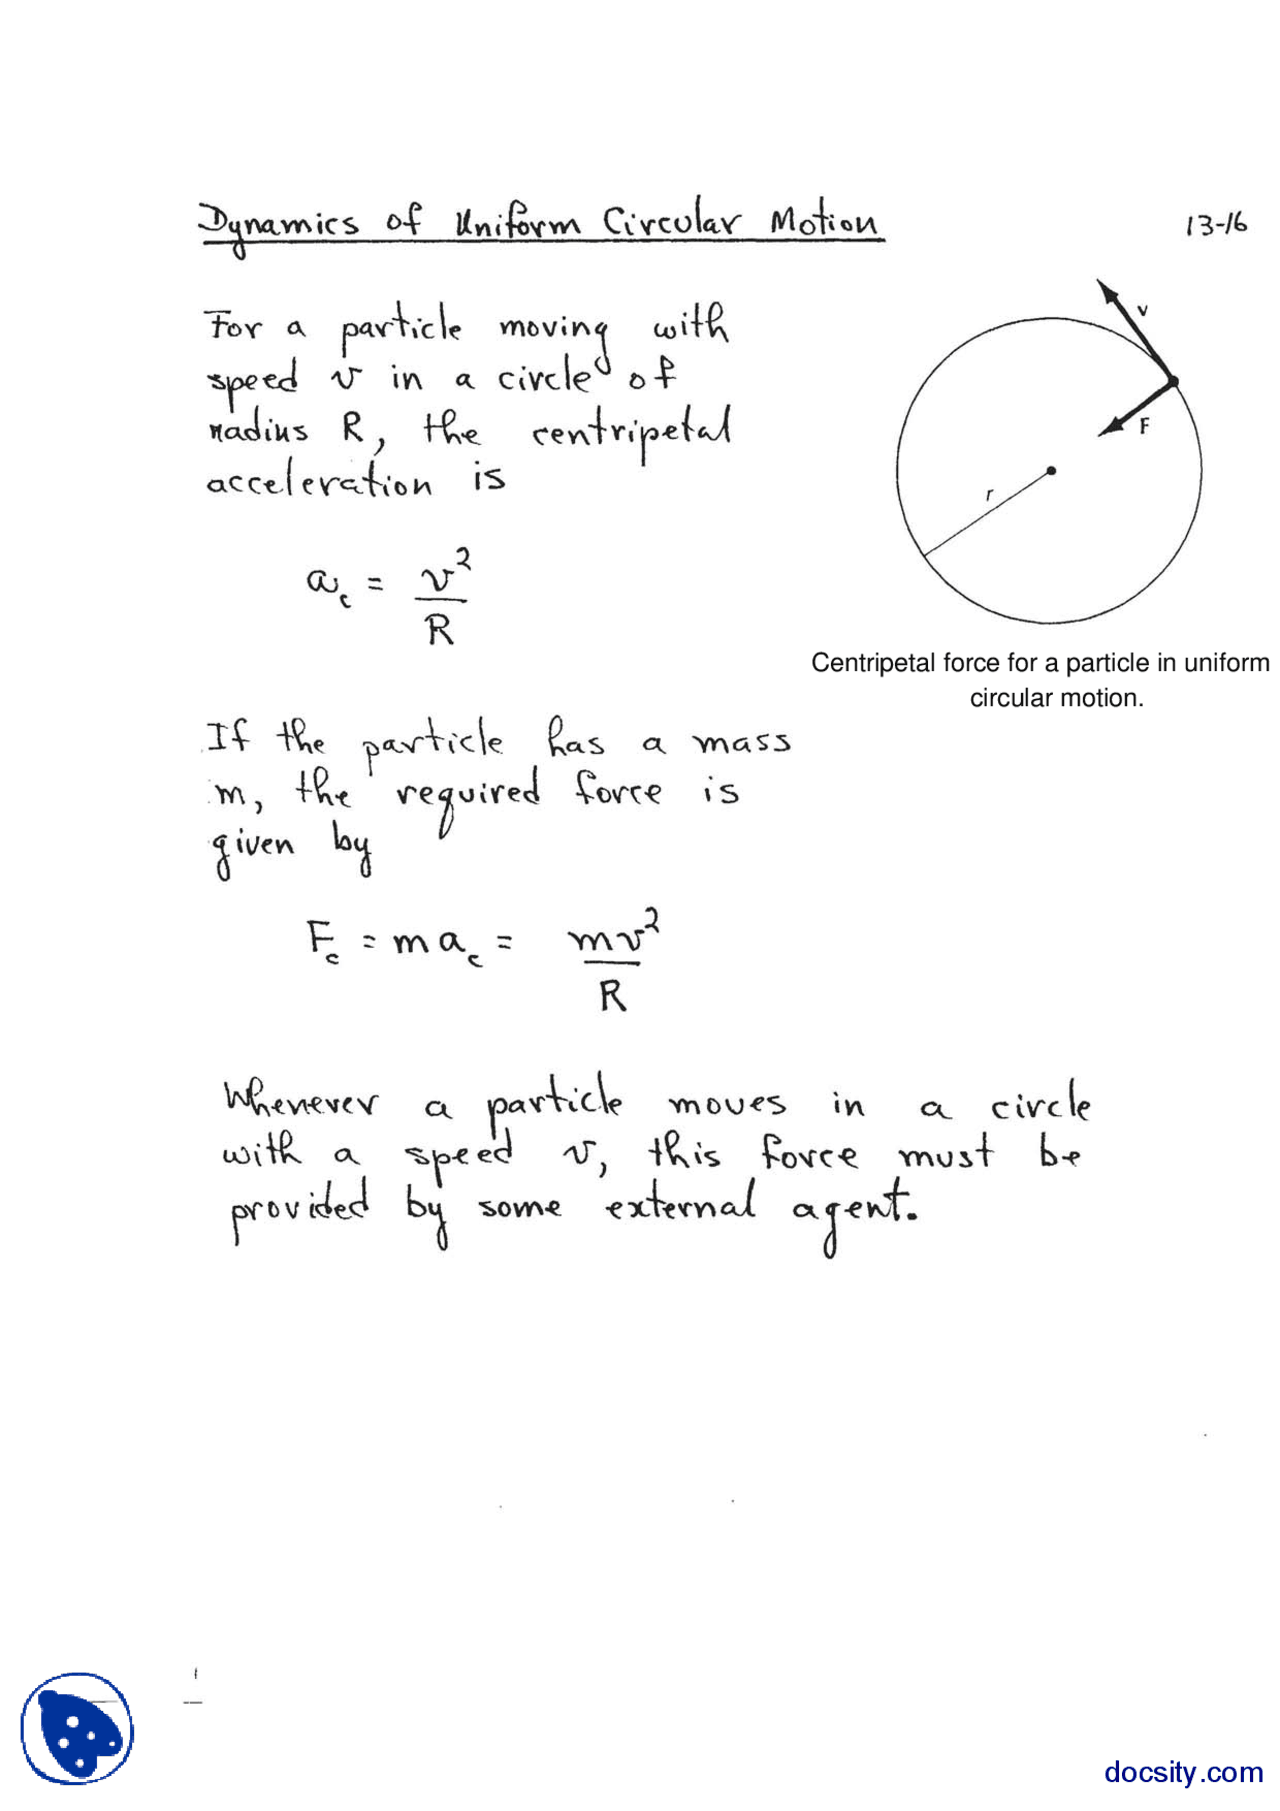 Dynamics of Uniform Circular Motion
13-16
For a particle moving with
speed v in a circle of
radius R, the centripetal
acceleration is
a_c = v²/R
v
F
r
Centripetal force for a particle in uniform
circular motion.
If the particle has a mass
m, the required force is
given by
F_c = m a_c = mv²/R
Whenever a particle moves in a circle
with a speed v, this force must be
provided by some external agent.
docsity.com